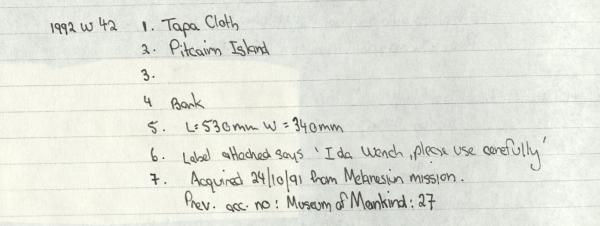 1992 W 42 1. Tapa Cloth
2. Pitcairn Island
3.
4 Bark
5. L=530mm W = 340mm
6. Label attached says 'Ida Wench, please use carefully'
7. Acquired 24/10/91 from Melanesian mission.
Prev. acc. no: Museum of Mankind: 27